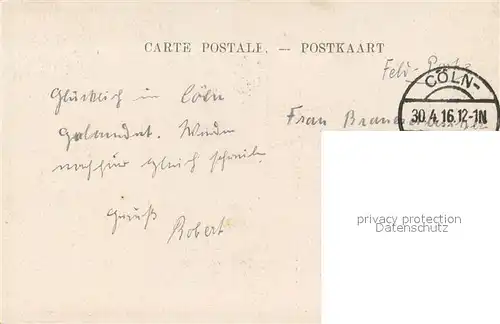 CARTE POSTALE. — POSTKAART
Feld-Post
CÖLN-
30.4.16.12-1N
Glücklich in Cöln
gelandet. Werde
gleich
Frau
Gruß
Robert
privacy protection
www.ansichtskarten-center.de